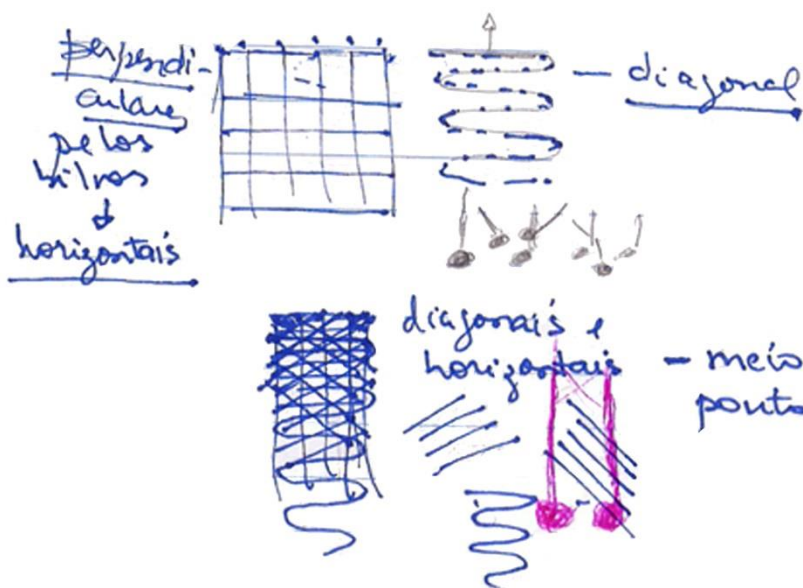 perpendi-
culare
pelos
bilros
horizontais
- diagonal
diagonais e
horizontais
- meio
ponto